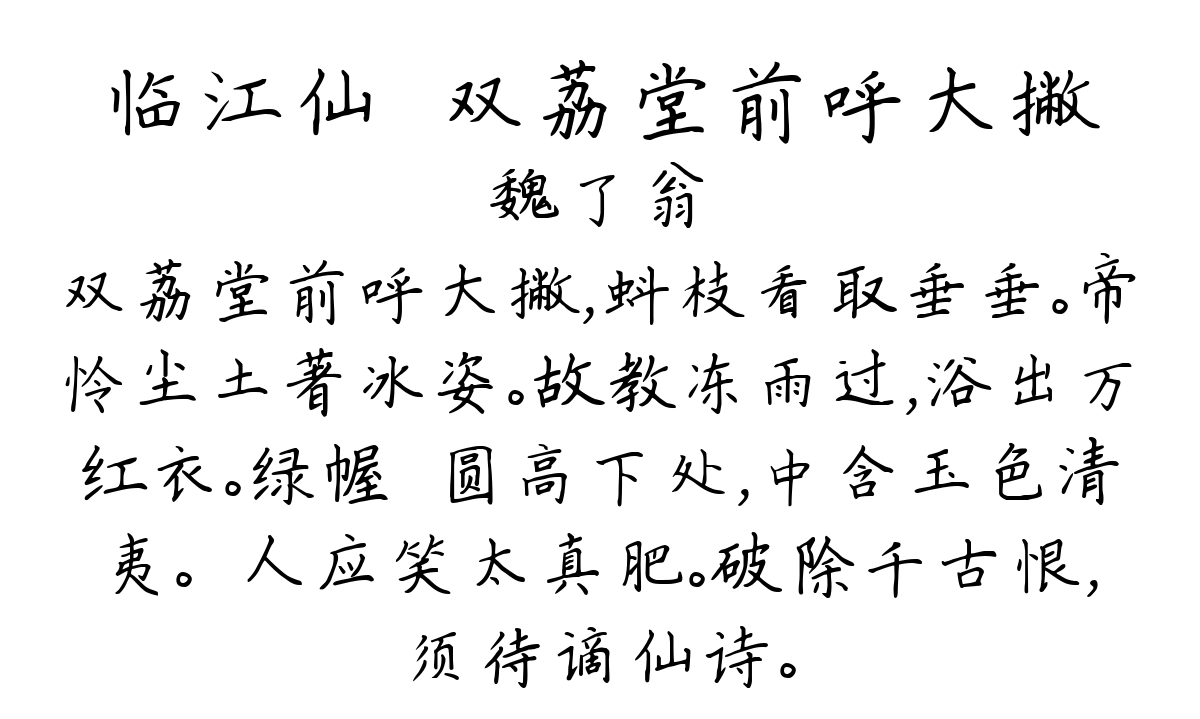 临江仙 双荔堂前呼大撇
魏了翁
双荔堂前呼大撇,蚪枝看取垂垂。帝
怜尘土著冰姿。故教冻雨过,浴出万
红衣。绿幄 圆高下处,中含玉色清
夷。人应笑太真肥。破除千古恨,
须待谪仙诗。